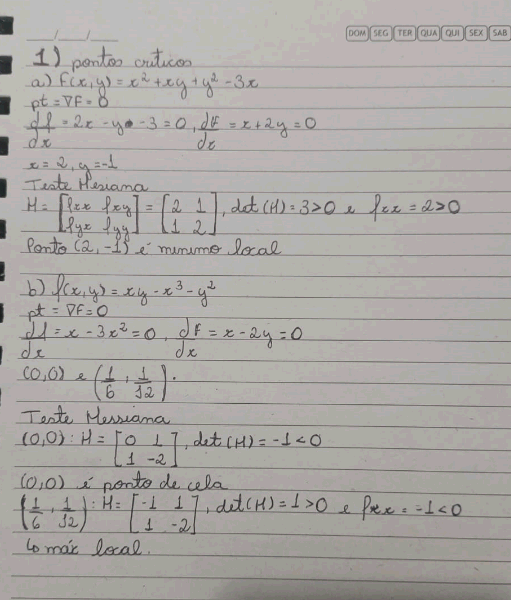 DOM SEG TER QUA QUI SEX SAB
1) pontos criticos
a) f(x,y) = x² + xy + y² - 3x
pt = ∇F = 0
df/dx = 2x - y - 3 = 0, dF/dx = x + 2y = 0
x = 2, y = -1
Teste Hesiana
H = [fxx fxy; fyx fyy] = [2 1; 1 2], det(H) = 3 > 0 e fxx = 2 > 0
Ponto (2, -1) é minimo local
b) f(x,y) = xy - x³ - y²
pt = ∇F = 0
df/dx = x - 3x² = 0, dF/dx = x - 2y = 0
(0,0) e (1/6, 1/12).
Teste Hessiana
(0,0): H = [0 1; 1 -2], det(H) = -1 < 0
(0,0) é ponto de cela
(1/6, 1/12): H = [-1 1; 1 -2], det(H) = 1 > 0 e fxx = -1 < 0
↳ máx local.